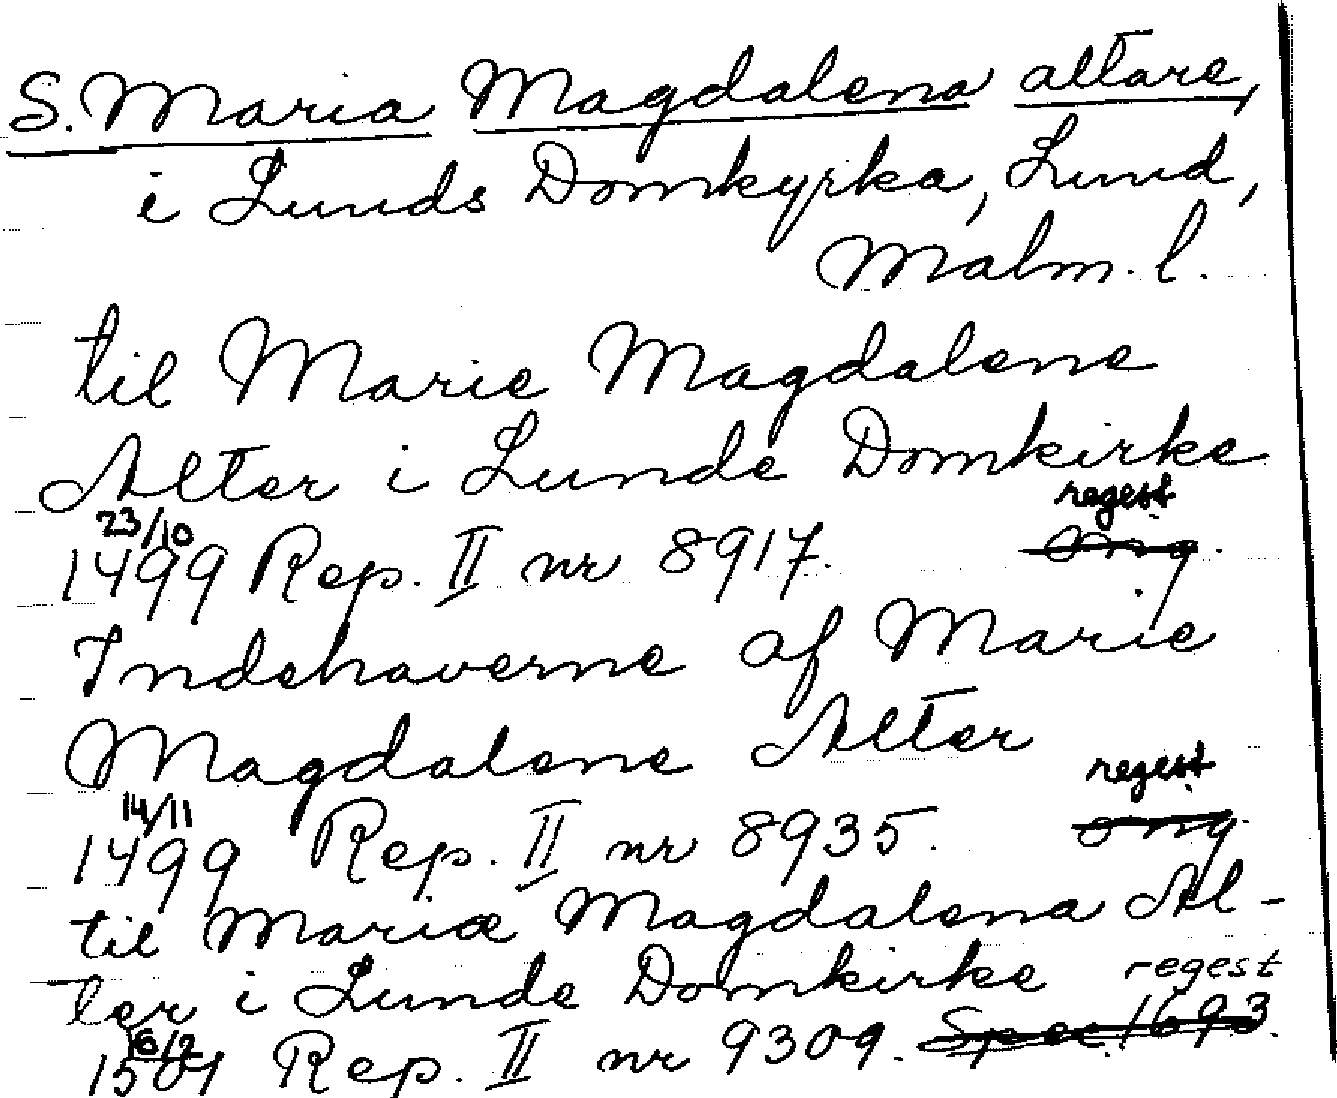 S. Maria Magdalena altare,
i Lunds Domkyrka, Lund,
Malm. l.
til Marie Magdalene
Alter i Lunde Domkirke
regest
23/10
1499 Rep. II nr 8917. Ong.
Indehaverne af Marie
Magdalene Alter
regest
14/11
1499 Rep. II nr 8935. ong.
til Mariæ Magdalena Al-
ter i Lunde Domkirke regest
6/2
1501 Rep. II nr 9309. Spec. 1693.